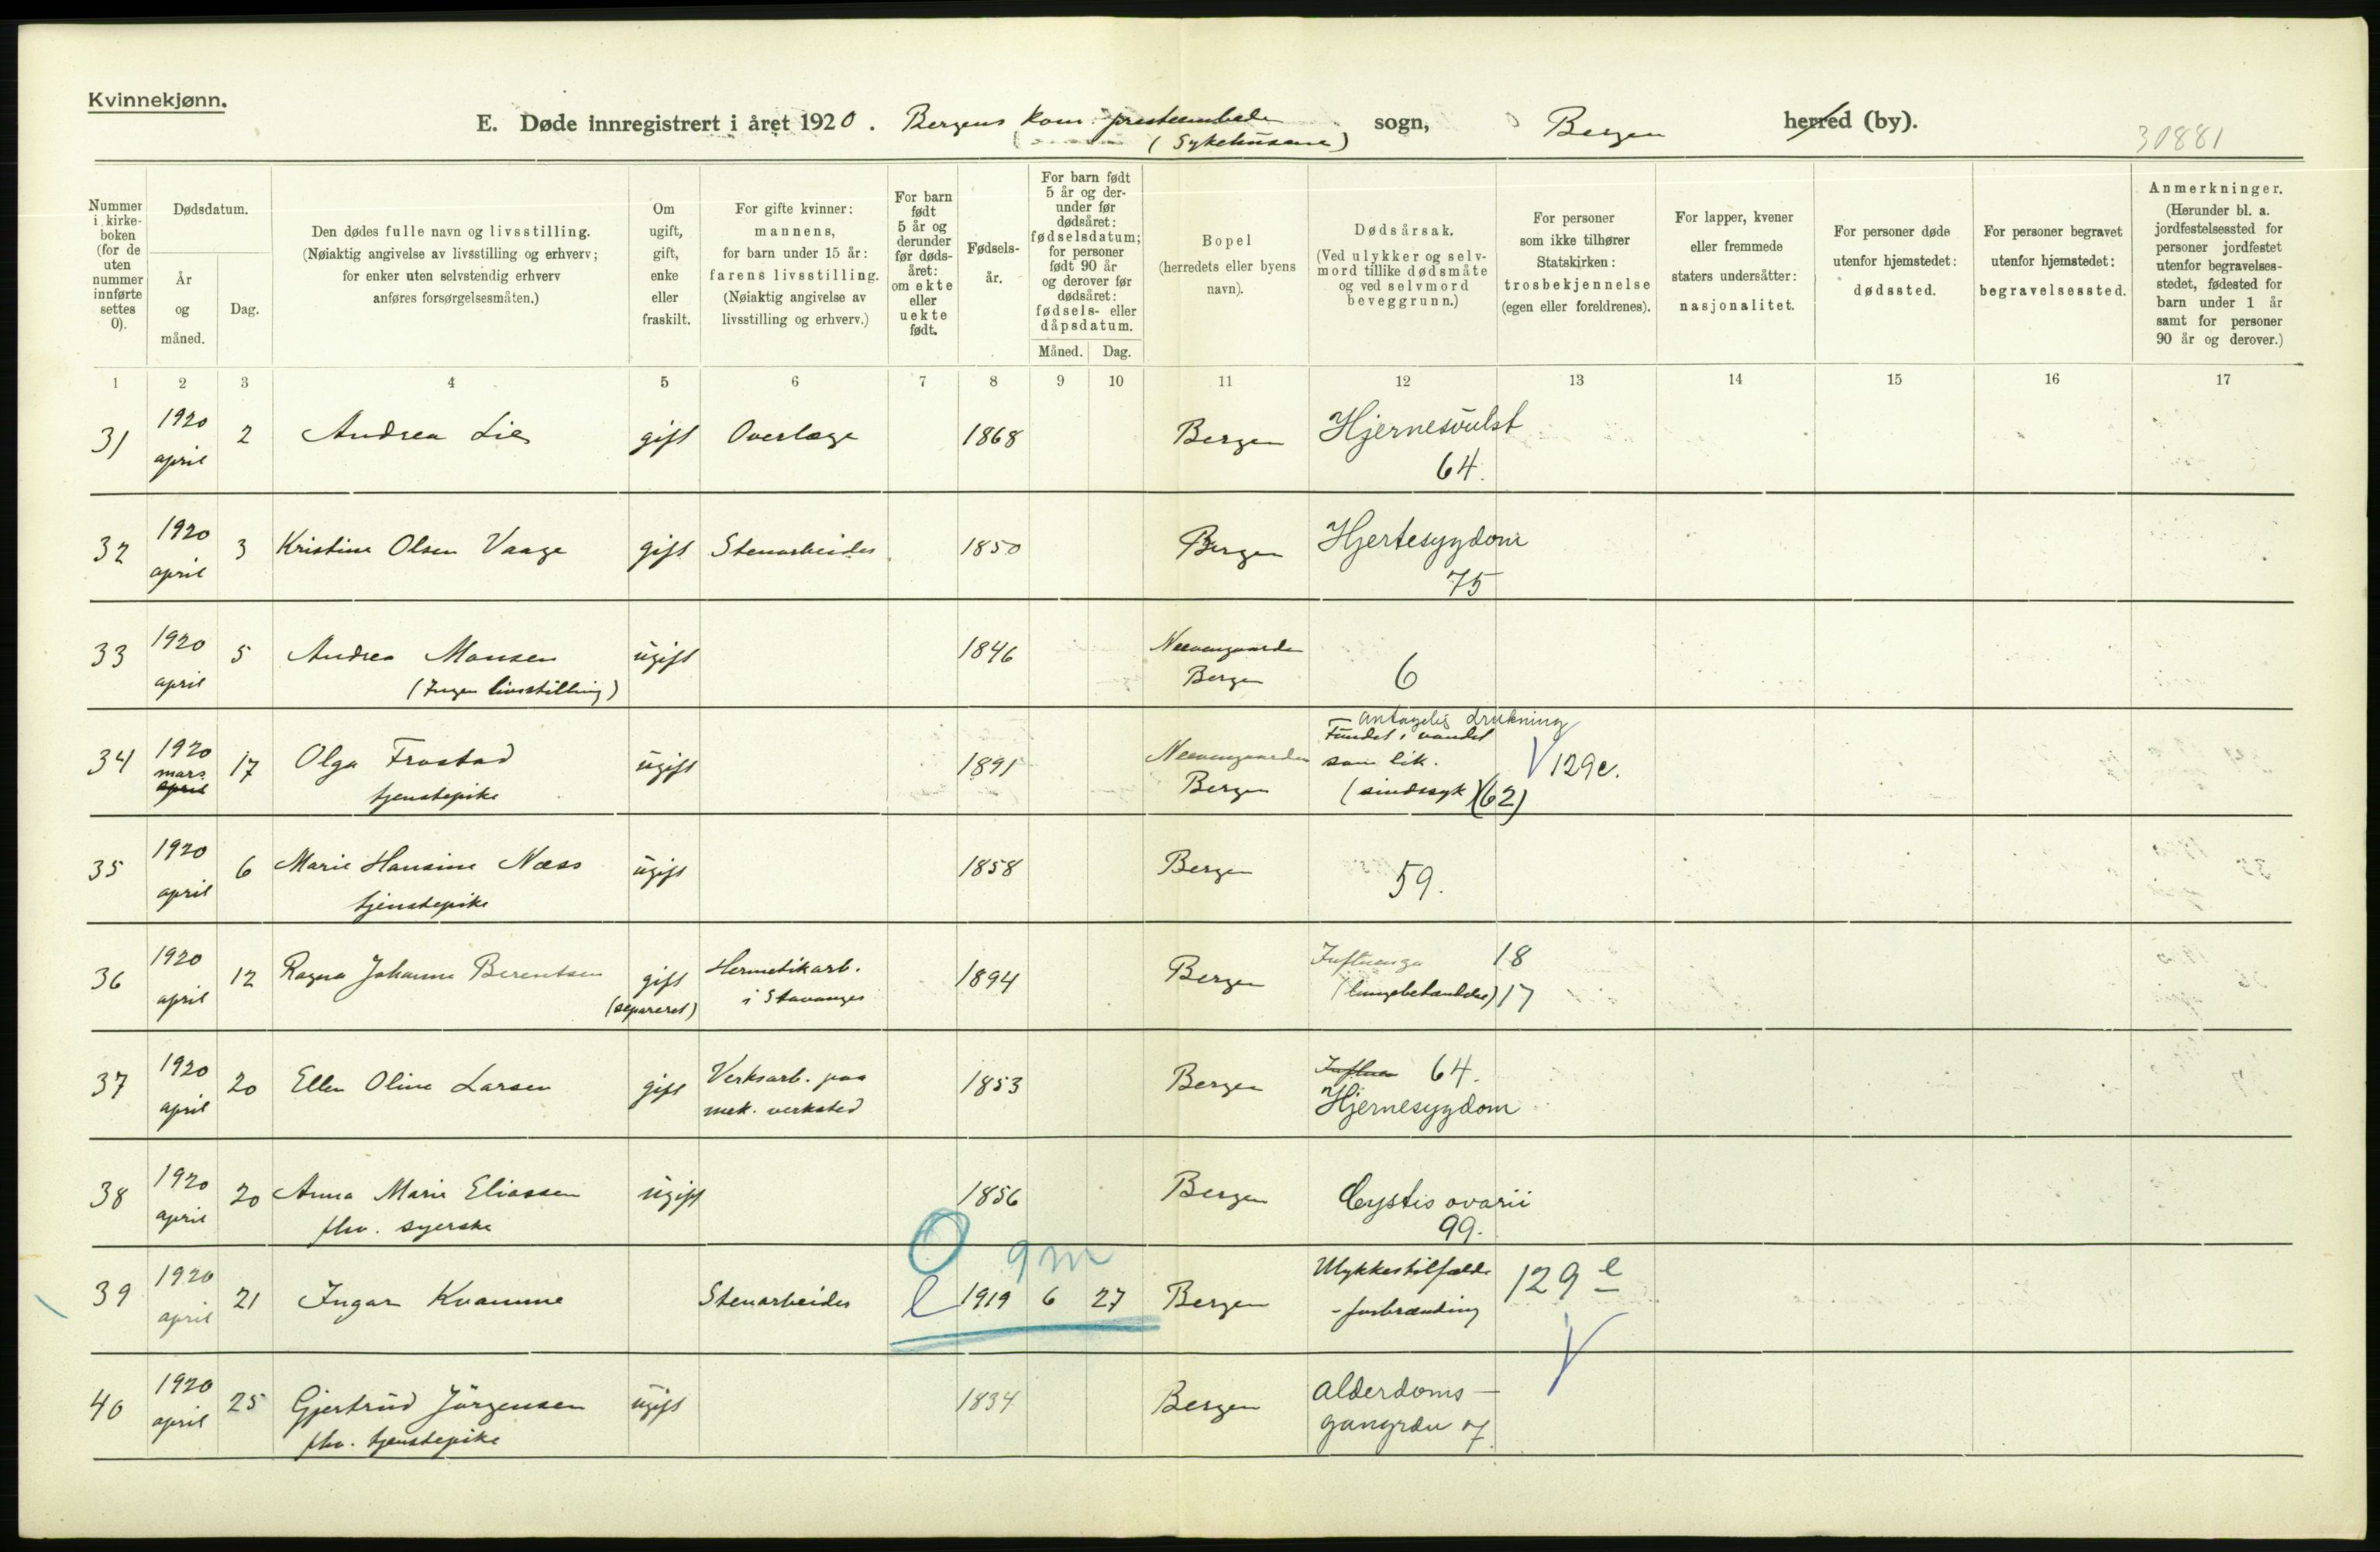 Kvinnekjønn.
E. Døde innregistrert i året 1920. Bergens kom. presteembede sogn, Bergen herred (by).
(Sykehusene)
30881
Nummer i kirkeboken (for de uten nummer innførte settes 0).
Dødsdatum.
År og måned.
Dag.
Den dødes fulle navn og livsstilling.
(Nøiaktig angivelse av livsstilling og erhverv; for enker uten selvstendig erhverv anføres forsørgelsesmåten.)
Om ugift, gift, enke eller fraskilt.
For gifte kvinner: mannens, for barn under 15 år: farens livsstilling.
(Nøiaktig angivelse av livsstilling og erhverv.)
For barn født 5 år og derunder før dødsåret: om ekte eller uekte født.
Fødselsår.
For barn født 5 år og derunder før dødsåret: fødselsdatum; for personer født 90 år og derover før dødsåret: fødsels- eller dåpsdatum.
Måned. Dag.
Bopel (herredets eller byens navn).
Dødsårsak.
(Ved ulykker og selvmord tillike dødsmåte og ved selvmord beveggrunn.)
For personer som ikke tilhører Statskirken: trosbekjennelse (egen eller foreldrenes).
For lapper, kvener eller fremmede staters undersåtter: nasjonalitet.
For personer døde utenfor hjemstedet: dødssted.
For personer begravet utenfor hjemstedet: begravelsessted.
Anmerkninger.
(Herunder bl. a. jordfestelsessted for personer jordfestet utenfor begravelsesstedet, fødested for barn under 1 år samt for personer 90 år og derover.)
1 2 3 4 5 6 7 8 9 10 11 12 13 14 15 16 17
31 1920 april 2 Andrea Lie gift Overlæge 1868 Bergen Hjernesvulst
64.
32 1920 april 3 Kristine Olsen Vaage gift Stenarbeider 1850 Bergen Hjertesygdom
75
33 1920 april 5 Andrea Monsen ugift 1846 Neevengaarden
(Ingen livsstilling) Bergen 6
34 1920 mars april 17 Olga Frostad ugift 1891 Neevengaarden antagelig drukning
Fundet i vandet
som lik. V 129e.
tjenestepike Bergen (sindssyk) (62)
35 1920 april 6 Marie Hansine Næss ugift 1858 Bergen 59.
tjenestepike
36 1920 april 12 Ragna Johanne Berentsen gift Hermetikarb. 1894 Bergen Influenza 18
(separeret) i Stavanger (lungebetændelse) 17
37 1920 april 20 Ellen Oline Larsen gift Verksarb. paa 1853 Bergen Influen 64.
mek. verksted Hjernesygdom
38 1920 april 20 Anna Marie Eliassen ugift 1856 Bergen Cystis ovarii
fhv. syerske 99.
O 9m
39 1920 april 21 Ingar Kvamme Stenarbeider e 1919 6 27 Bergen Ulykkestilfælde 129 e
- forbrænding V
40 1920 april 25 Gjertrud Jørgensen ugift 1834 Bergen Alderdoms-
fhv. tjenestepike gangræn 7.